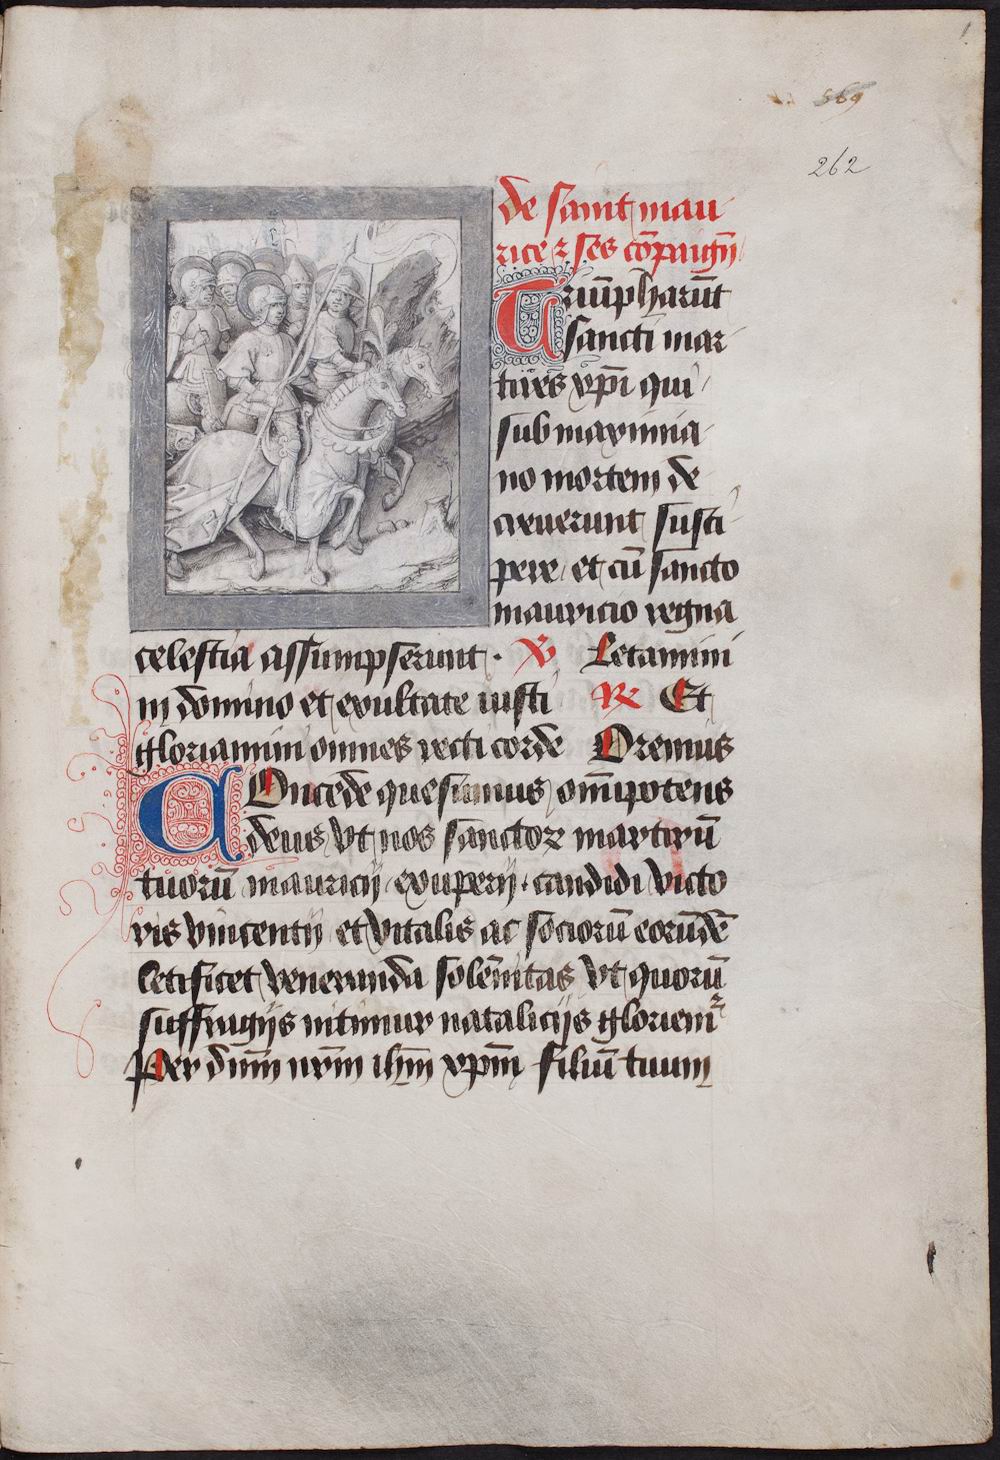 569
262
de saint mau
rice ⁊ ses cõpaigñ
Triũpharũt
sancti mar
tires xp̃i qui
sub maximia
no mortem de
creuerunt susci
pere et cũ sancto
mauricio regna
celestia assumpserunt . V̷ Letamini
in domino et exultate iusti R̷ Et
gloriamini omnes recti corde Oremus
COncede quesumus om̃ipotens
deus vt nos sanctoꝝ martirũ
tuorũ mauricij exuperij . candidi victo
ris vincentij et vitalis ac sociorũ eorũdẽ
letificet veneranda solẽnitas vt quorũ
suffragijs nitimur natalicijs gloriem᷑
Per dñm nr̃m ih̃m xp̃m filiũ tuum